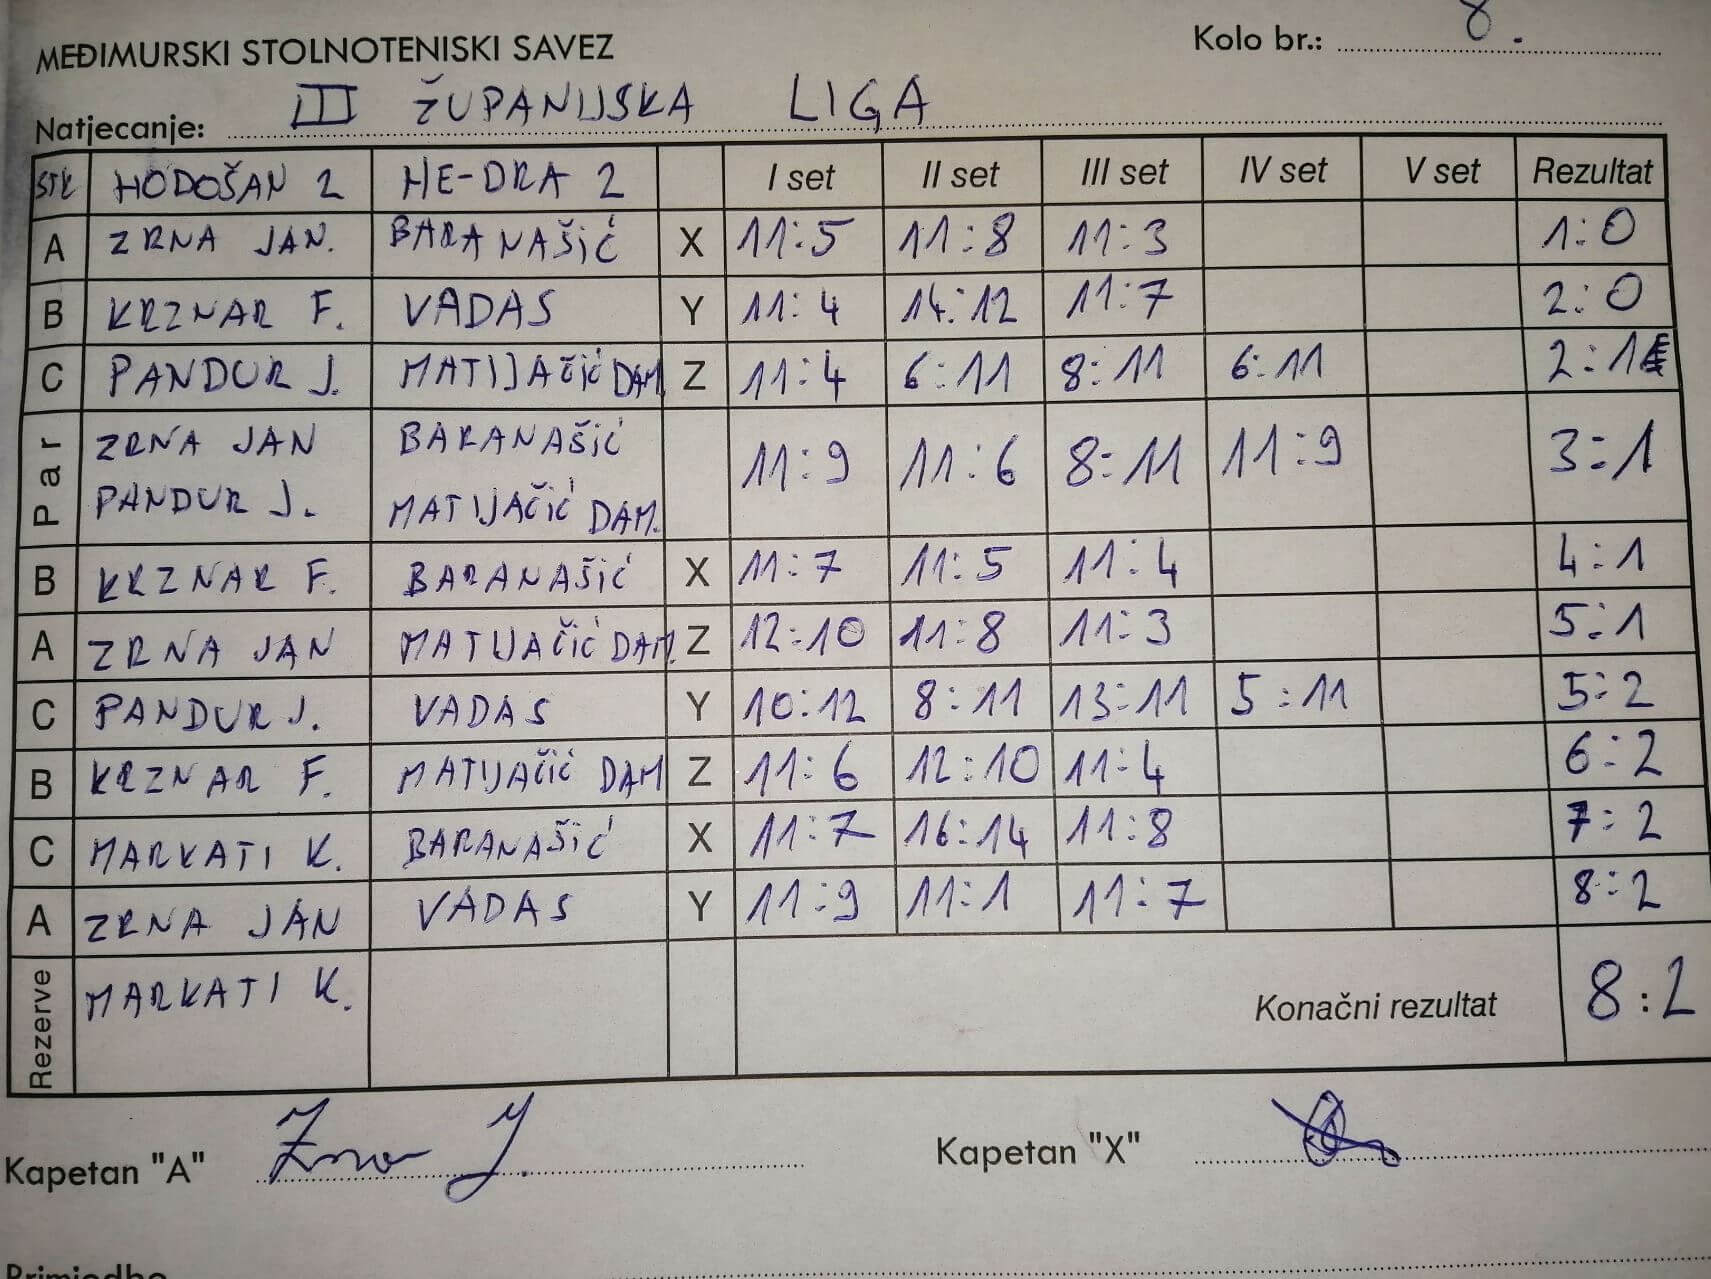 MEĐIMURSKI STOLNOTENISKI SAVEZ Kolo br.: 8.
Natjecanje: III ŽUPANIJSKA LIGA
STK HODOŠAN 2 HE-DRA 2 I set II set III set IV set V set Rezultat
A ZRNA JAN. BARANAŠIĆ X 11:5 11:8 11:3 1:0
B KRZNAR F. VADAS Y 11:4 14:12 11:7 2:0
C PANDUR J. MATIJAČIĆ DAM Z 11:4 6:11 8:11 6:11 2:1
Par ZRNA JAN BARANAŠIĆ 11:9 11:6 8:11 11:9 3:1
PANDUR J. MATIJAČIĆ DAM.
B KRZNAR F. BARANAŠIĆ X 11:7 11:5 11:4 4:1
A ZRNA JAN MATIJAČIĆ DAM. Z 12:10 11:8 11:3 5:1
C PANDUR J. VADAS Y 10:12 8:11 13:11 5:11 5:2
B KRZNAR F. MATIJAČIĆ DAM Z 11:6 12:10 11:4 6:2
C MARKATI K. BARANAŠIĆ X 11:7 16:14 11:8 7:2
A ZRNA JAN VADAS Y 11:9 11:1 11:7 8:2
Rezerve MARKATI K. Konačni rezultat 8:2
Kapetan "A" Zrna J. Kapetan "X"